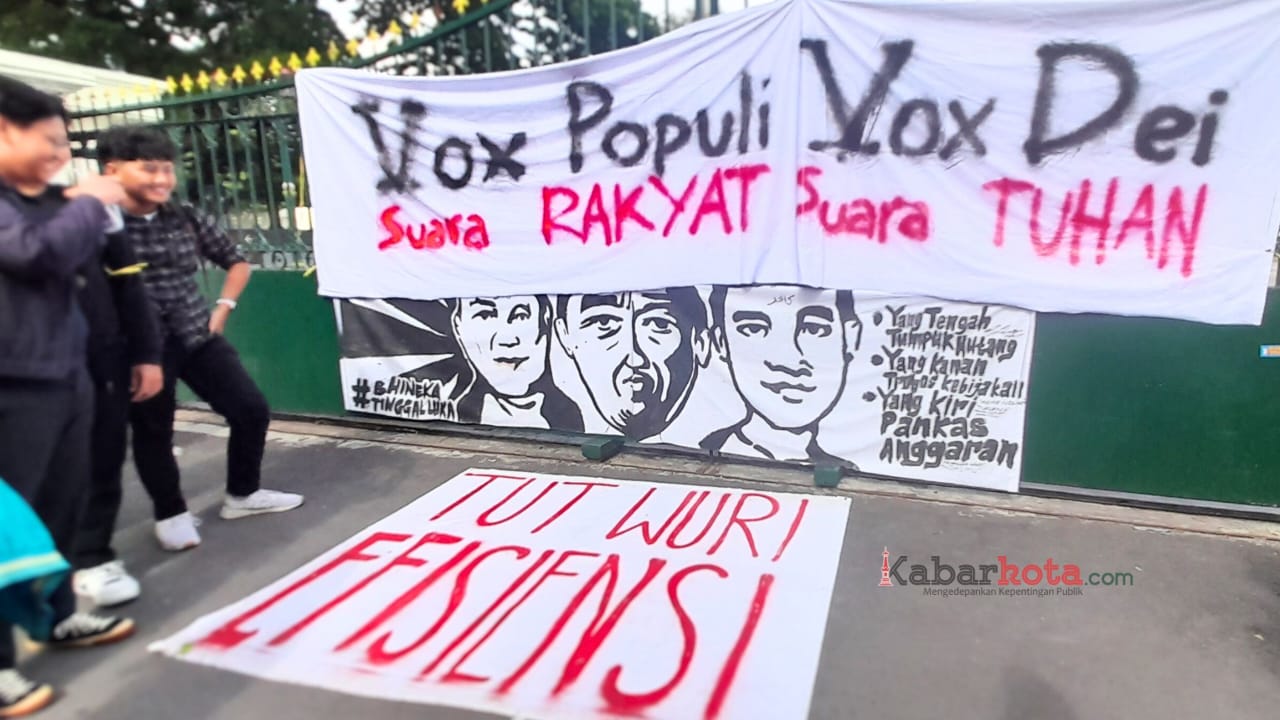 Vox Populi Vox Dei
Suara RAKYAT Suara TUHAN
#BHINEKA
TINGGAL LUKA
• Yang Tengah
Tumpuk Hutang
• Yang Kanan
Trobos Kebijakan
• Yang Kiri
Pankas
Anggaran
TUT WURI
EFISIENSI
Kabarkota.com
Mengedepankan Kepentingan Publik